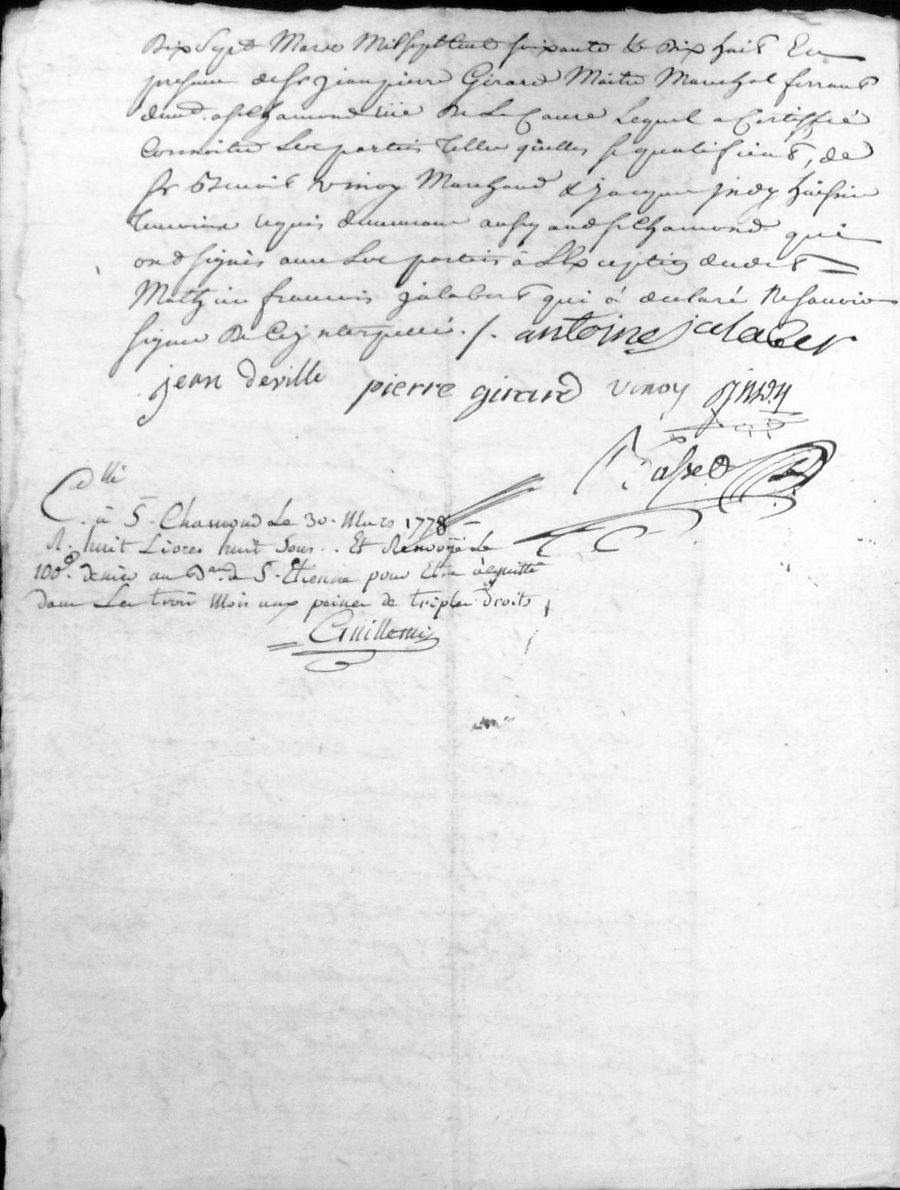 Dix Sept Mars Mil sept cent soixante & Dix huit En
presence de Sr jean pierre Girard Maitre Marechal ferrant
dud. St Chamond rue De La Lequel a Certiffié
Connoitre Les parties telles qu'elles se qualifient, de
Sr Benoit vinoy Marchand & jacque jndy huissier
temoins requis demeurant aussy aud St Chamond qui
ont signés avec Les parties à L'Exception dudit
Mathieu francois jalabert qui à declaré Ne savoir
signer De Ce jnterpellé ./. antoine jalaber
jean deville pierre girard vinoy jndy
C lle
à S. Chamond Le 30. Mars 1778
R. huit Livres huit Sous .. Et Renvoyé Le
100e. denier au Bau. de S. Etienne pour Etre acquitté
dans Les trois Mois aux peines de triples Droits